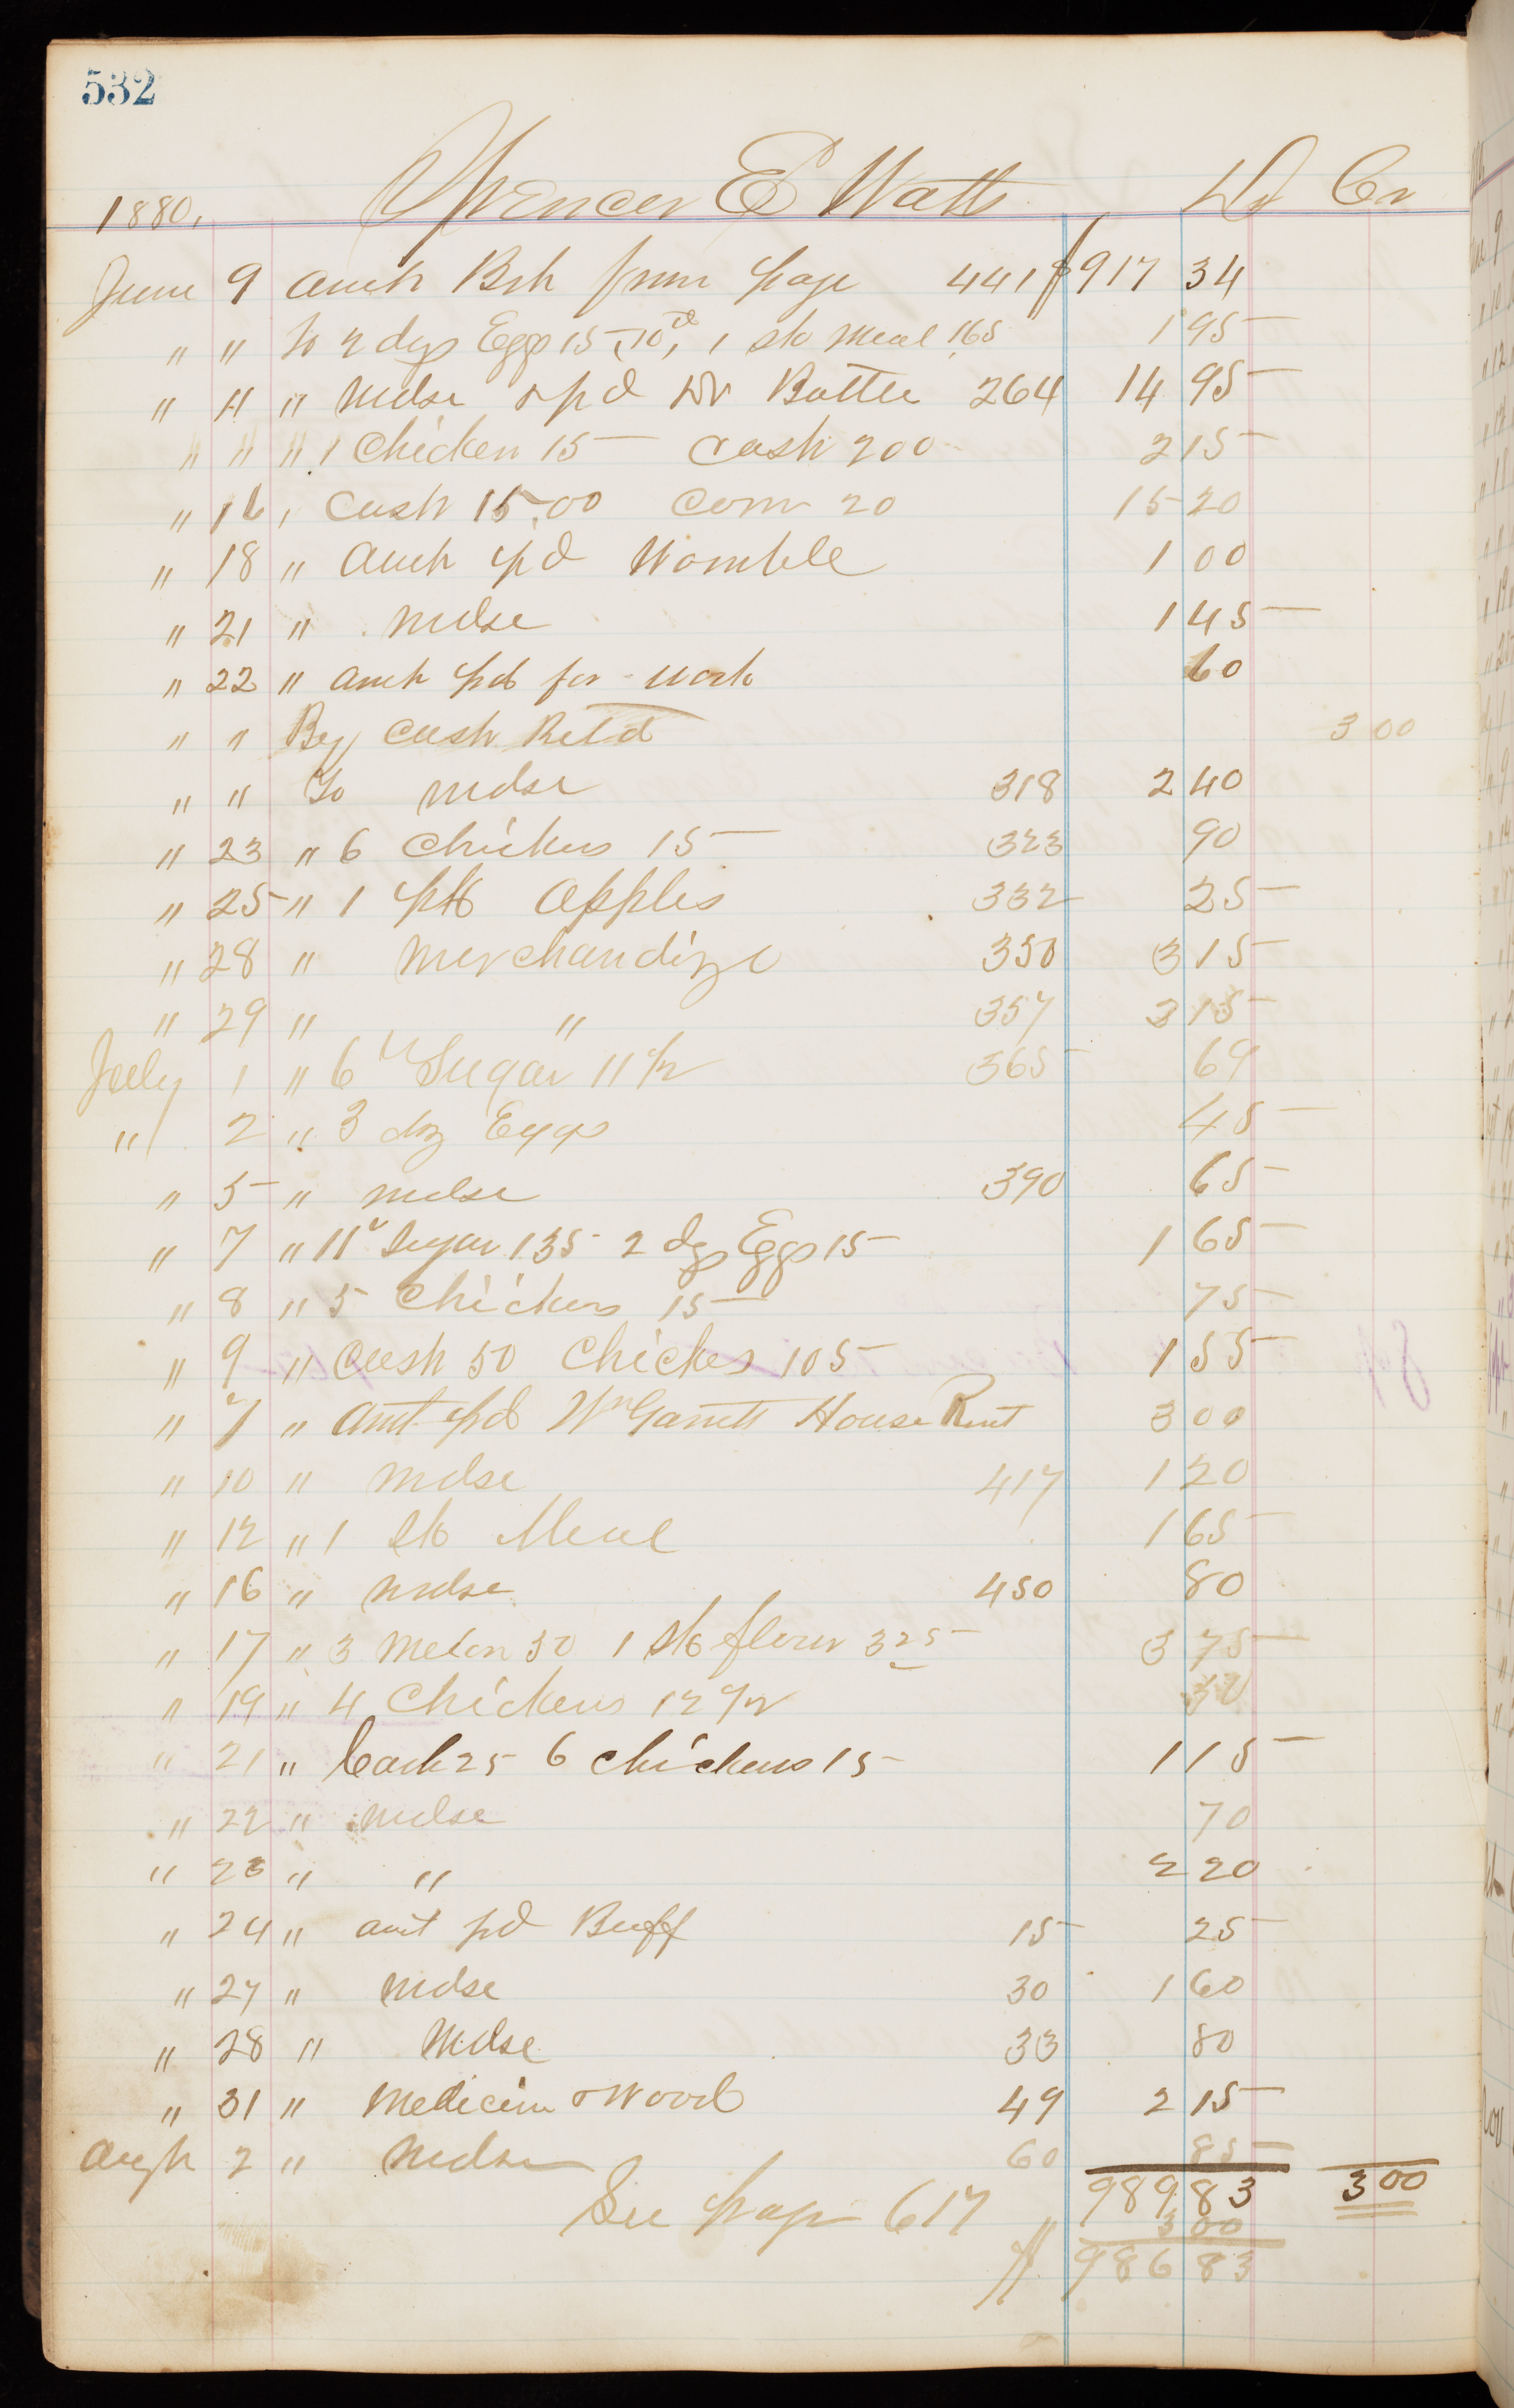 532
1880. Spencer E Watts Dr Cr
June 9 Amt Brt from page 441 $917 34
" " To 2 dzs Eggs 15, 1 sk Meal 165 1 95
" 11 " Mdse & pd Dr Battle 264 14 95
" 11 " 1 Chicken 15 Cash 200 2 15
" 16 " Cash 15.00 Corn 20 15 20
" 18 " Amt pd Womble 1 00
" 21 " Mdse 1 45
" 22 " Amt pd for work 60
" " By Cash Retd 3 00
" " To Mdse 318 2 40
" 23 " 6 Chickens 15 323 90
" 25 " 1 pk Apples 332 25
" 28 " Merchandize 350 3 15
" 29 " " 357 3 15
July 1 " 6 Sugar 11 1/2 365 69
" 2 " 3 doz Eggs 45
" 5 " Mdse 390 65
" 7 " 11 Sugar 135 2 dzs Eggs 15 1 65
" 8 " 5 Chickens 15 75
" 9 " Cash 50 Chickes 105 1 55
" 7 " Amt pd Wm Garrett House Rent 3 00
" 10 " Mdse 417 1 20
" 12 " 1 sk Meal 1 65
" 16 " Mdse 450 80
" 17 " 3 Melon 50 1 sk flour 325 3 75
" 19 " 4 Chickens 12 1/2
" 21 " Cash 25 6 Chickens 15 1 15
" 22 " Mdse 70
" 23 " " 2 20
" 24 " amt pd Buff 15 25
" 27 " Mdse 30 1 60
" 28 " Mdse 33 80
" 31 " Medicine & Wood 49 2 15
Augt 2 " Mdse 60 85
989 83 3 00
See page 617 3 00
$ 986 83